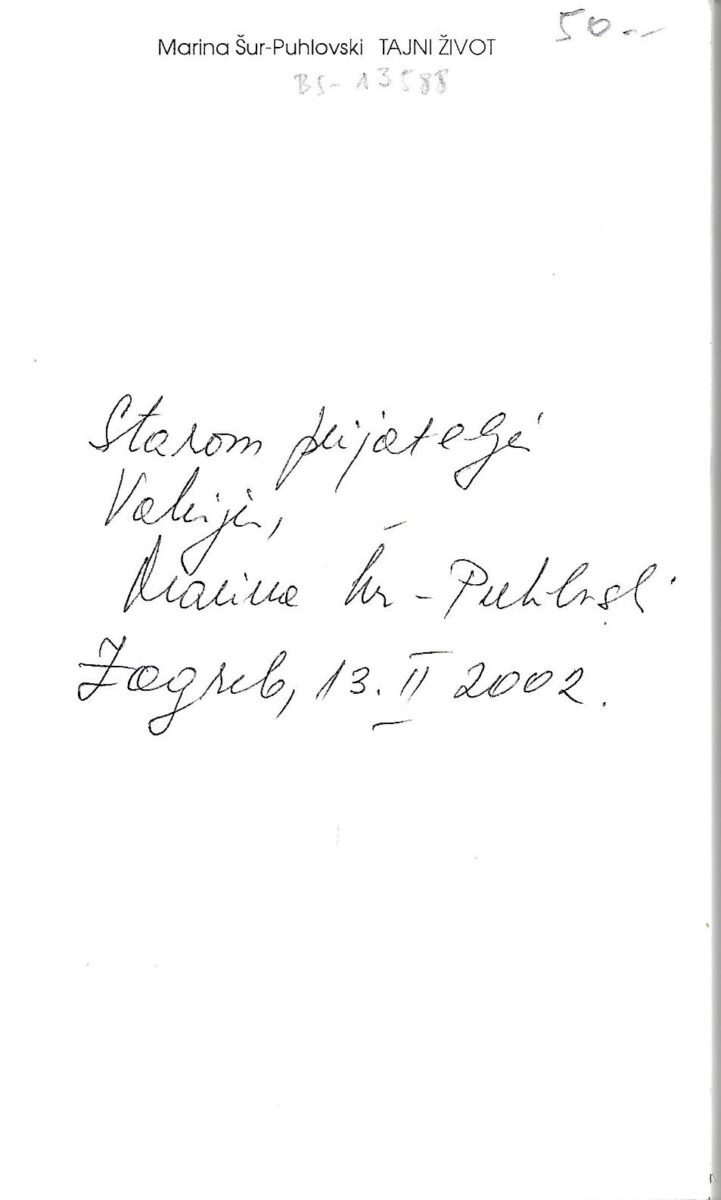 50.--
Marina Šur-Puhlovski TAJNI ŽIVOT
BS-13588
Starom prijatelju
Marina Šur-Puhlovski
Zagreb, 13. II 2002.